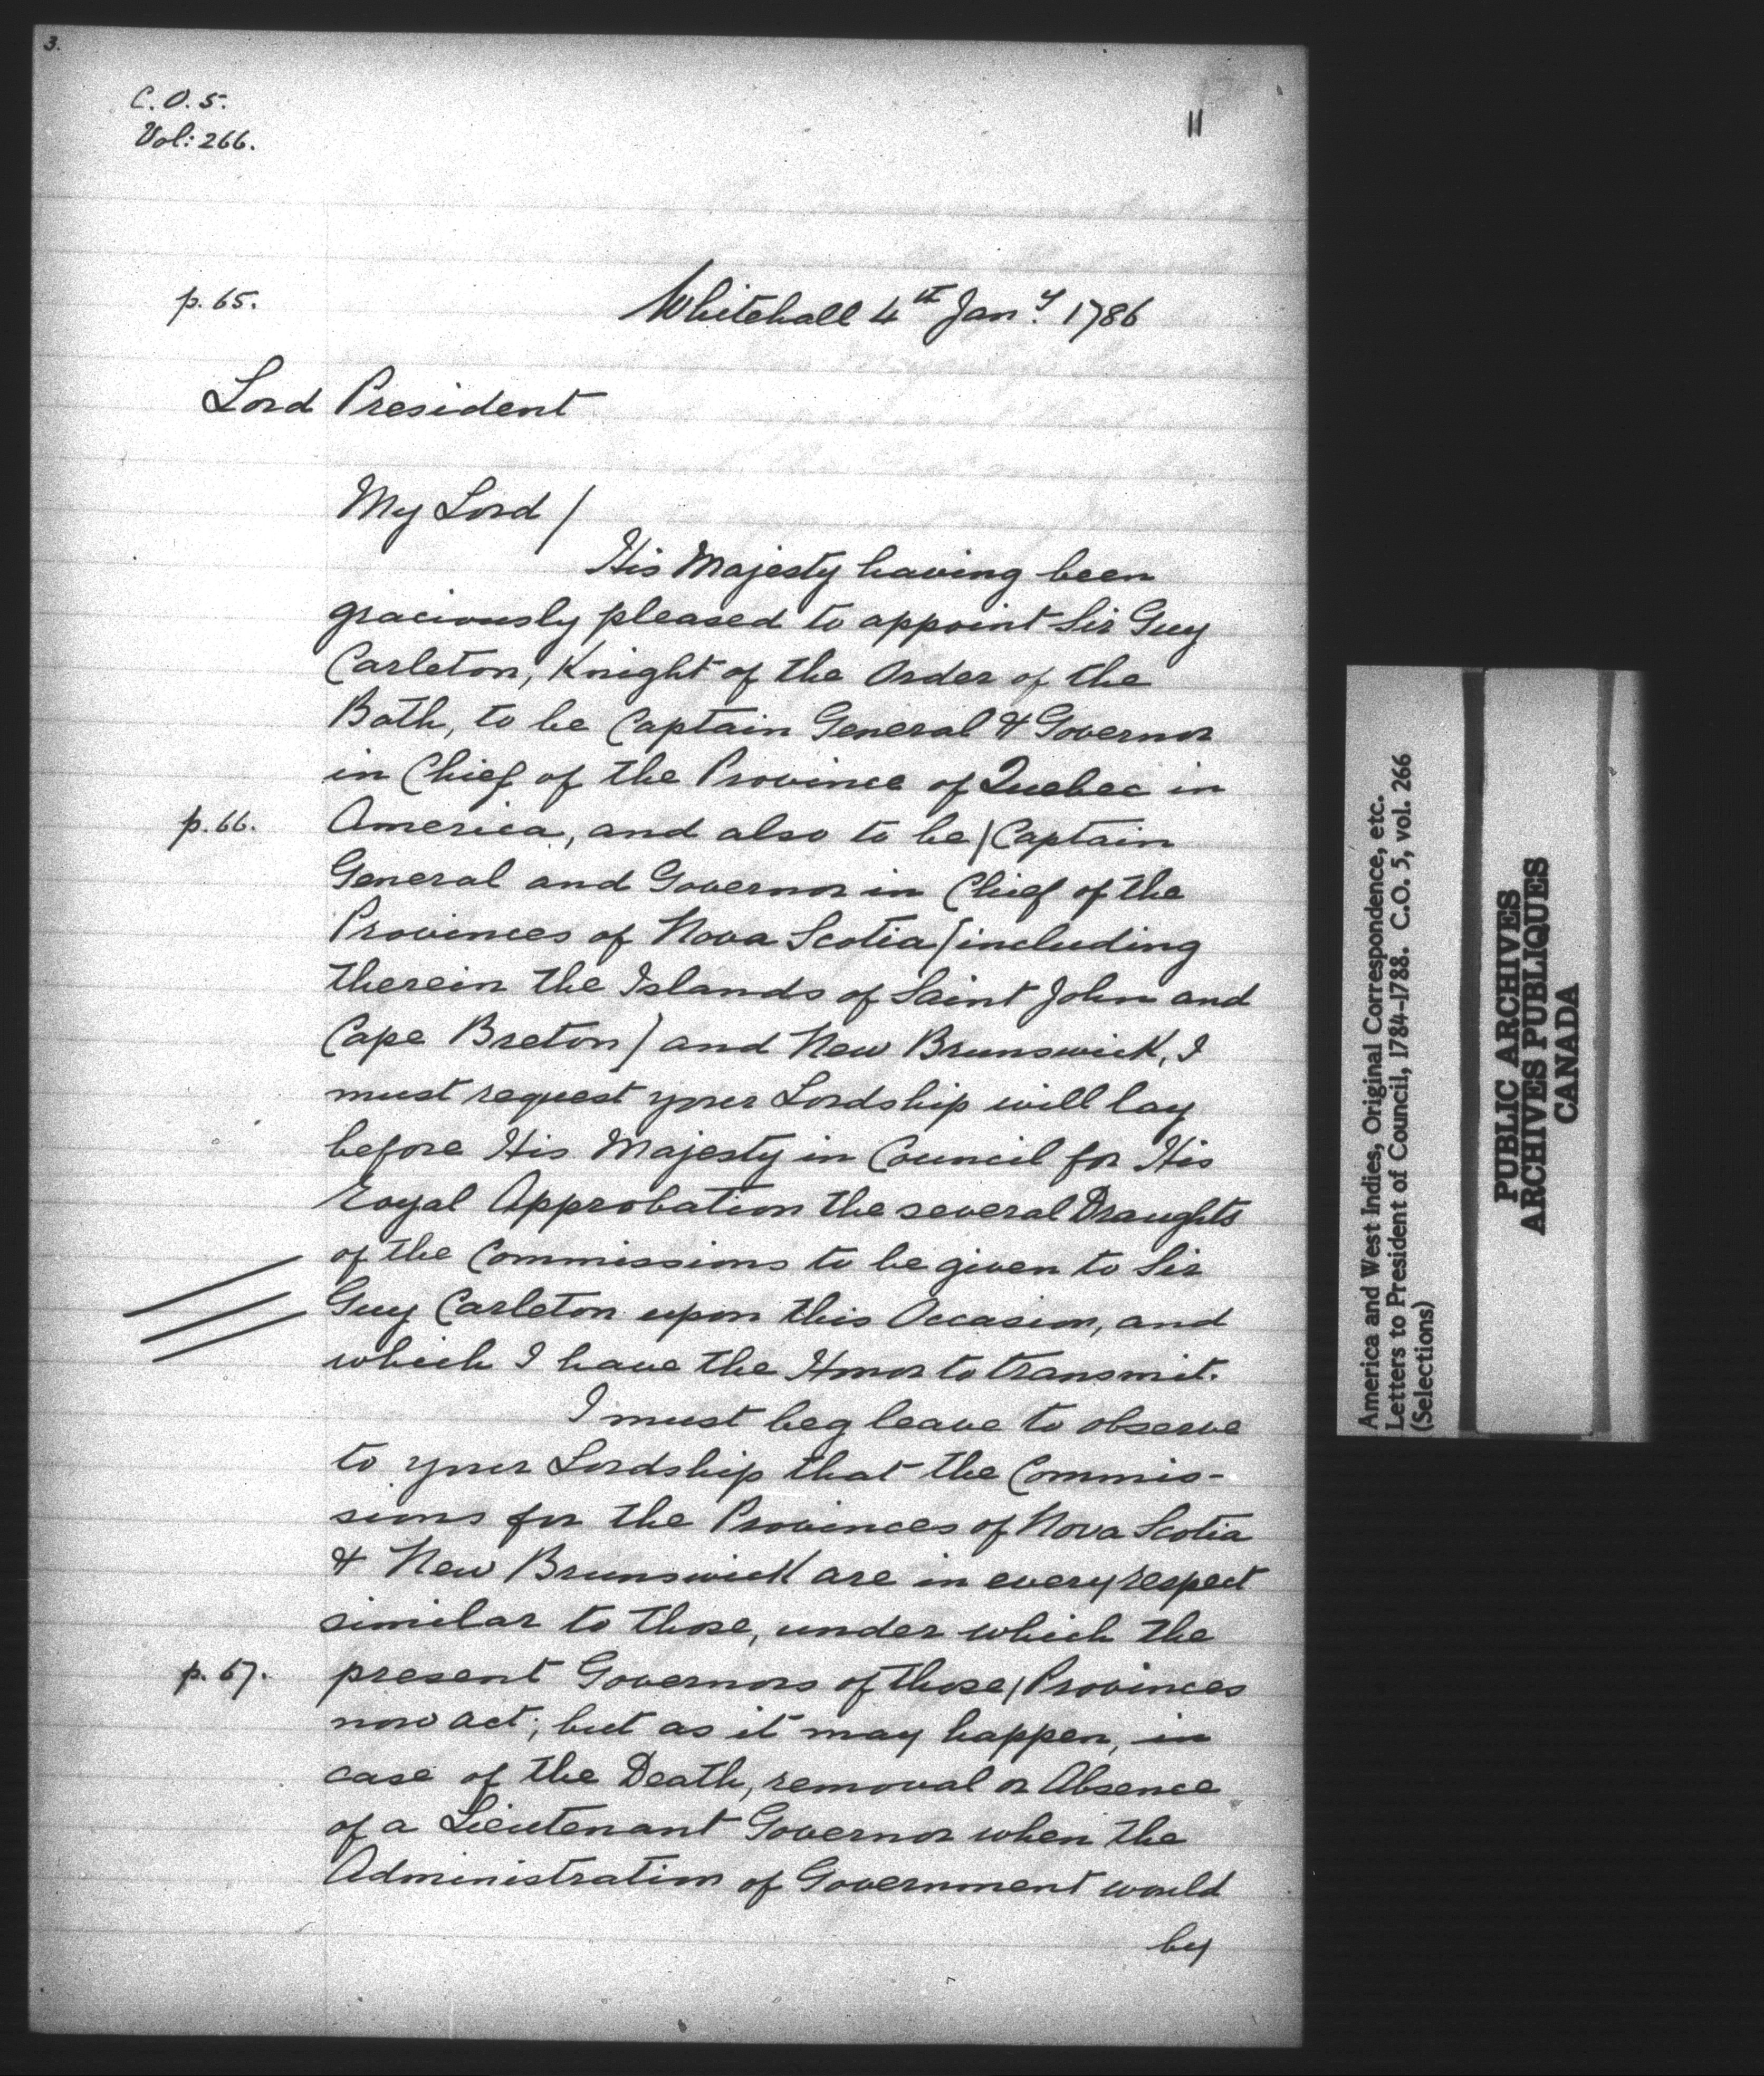 3.
C.O. 5.
Vol: 266.
11
p. 65.
Whitehall 4th Jany. 1786
Lord President
My Lord /
His Majesty having been
graciously pleased to appoint Sir Guy
Carleton, Knight of the Order of the
Bath, to be Captain General & Governor
in Chief of the Province of Quebec in
p. 66.
America, and also to be / Captain
General and Governor in Chief of the
Provinces of Nova Scotia (including
therein the Islands of Saint John and
Cape Breton) and New Brunswick, I
must request your Lordship will lay
before His Majesty in Council for His
Royal Approbation the several Draughts
of the Commissions to be given to Sir
Guy Carleton upon this Occasion, and
which I have the Honor to transmit.
I must beg leave to observe
to your Lordship that the Commis-
sions for the Provinces of Nova Scotia
& New Brunswick are in every respect
similar to those, under which the
p. 67.
present Governors of those / Provinces
now act; but as it may happen, in
case of the Death, removal or Absence
of a Lieutenant Governor when the
Administration of Government would
by
America and West Indies, Original Correspondence, etc.
Letters to President of Council, 1784-1788. C.O. 5, vol. 266
(Selections)
PUBLIC ARCHIVES
ARCHIVES PUBLIQUES
CANADA